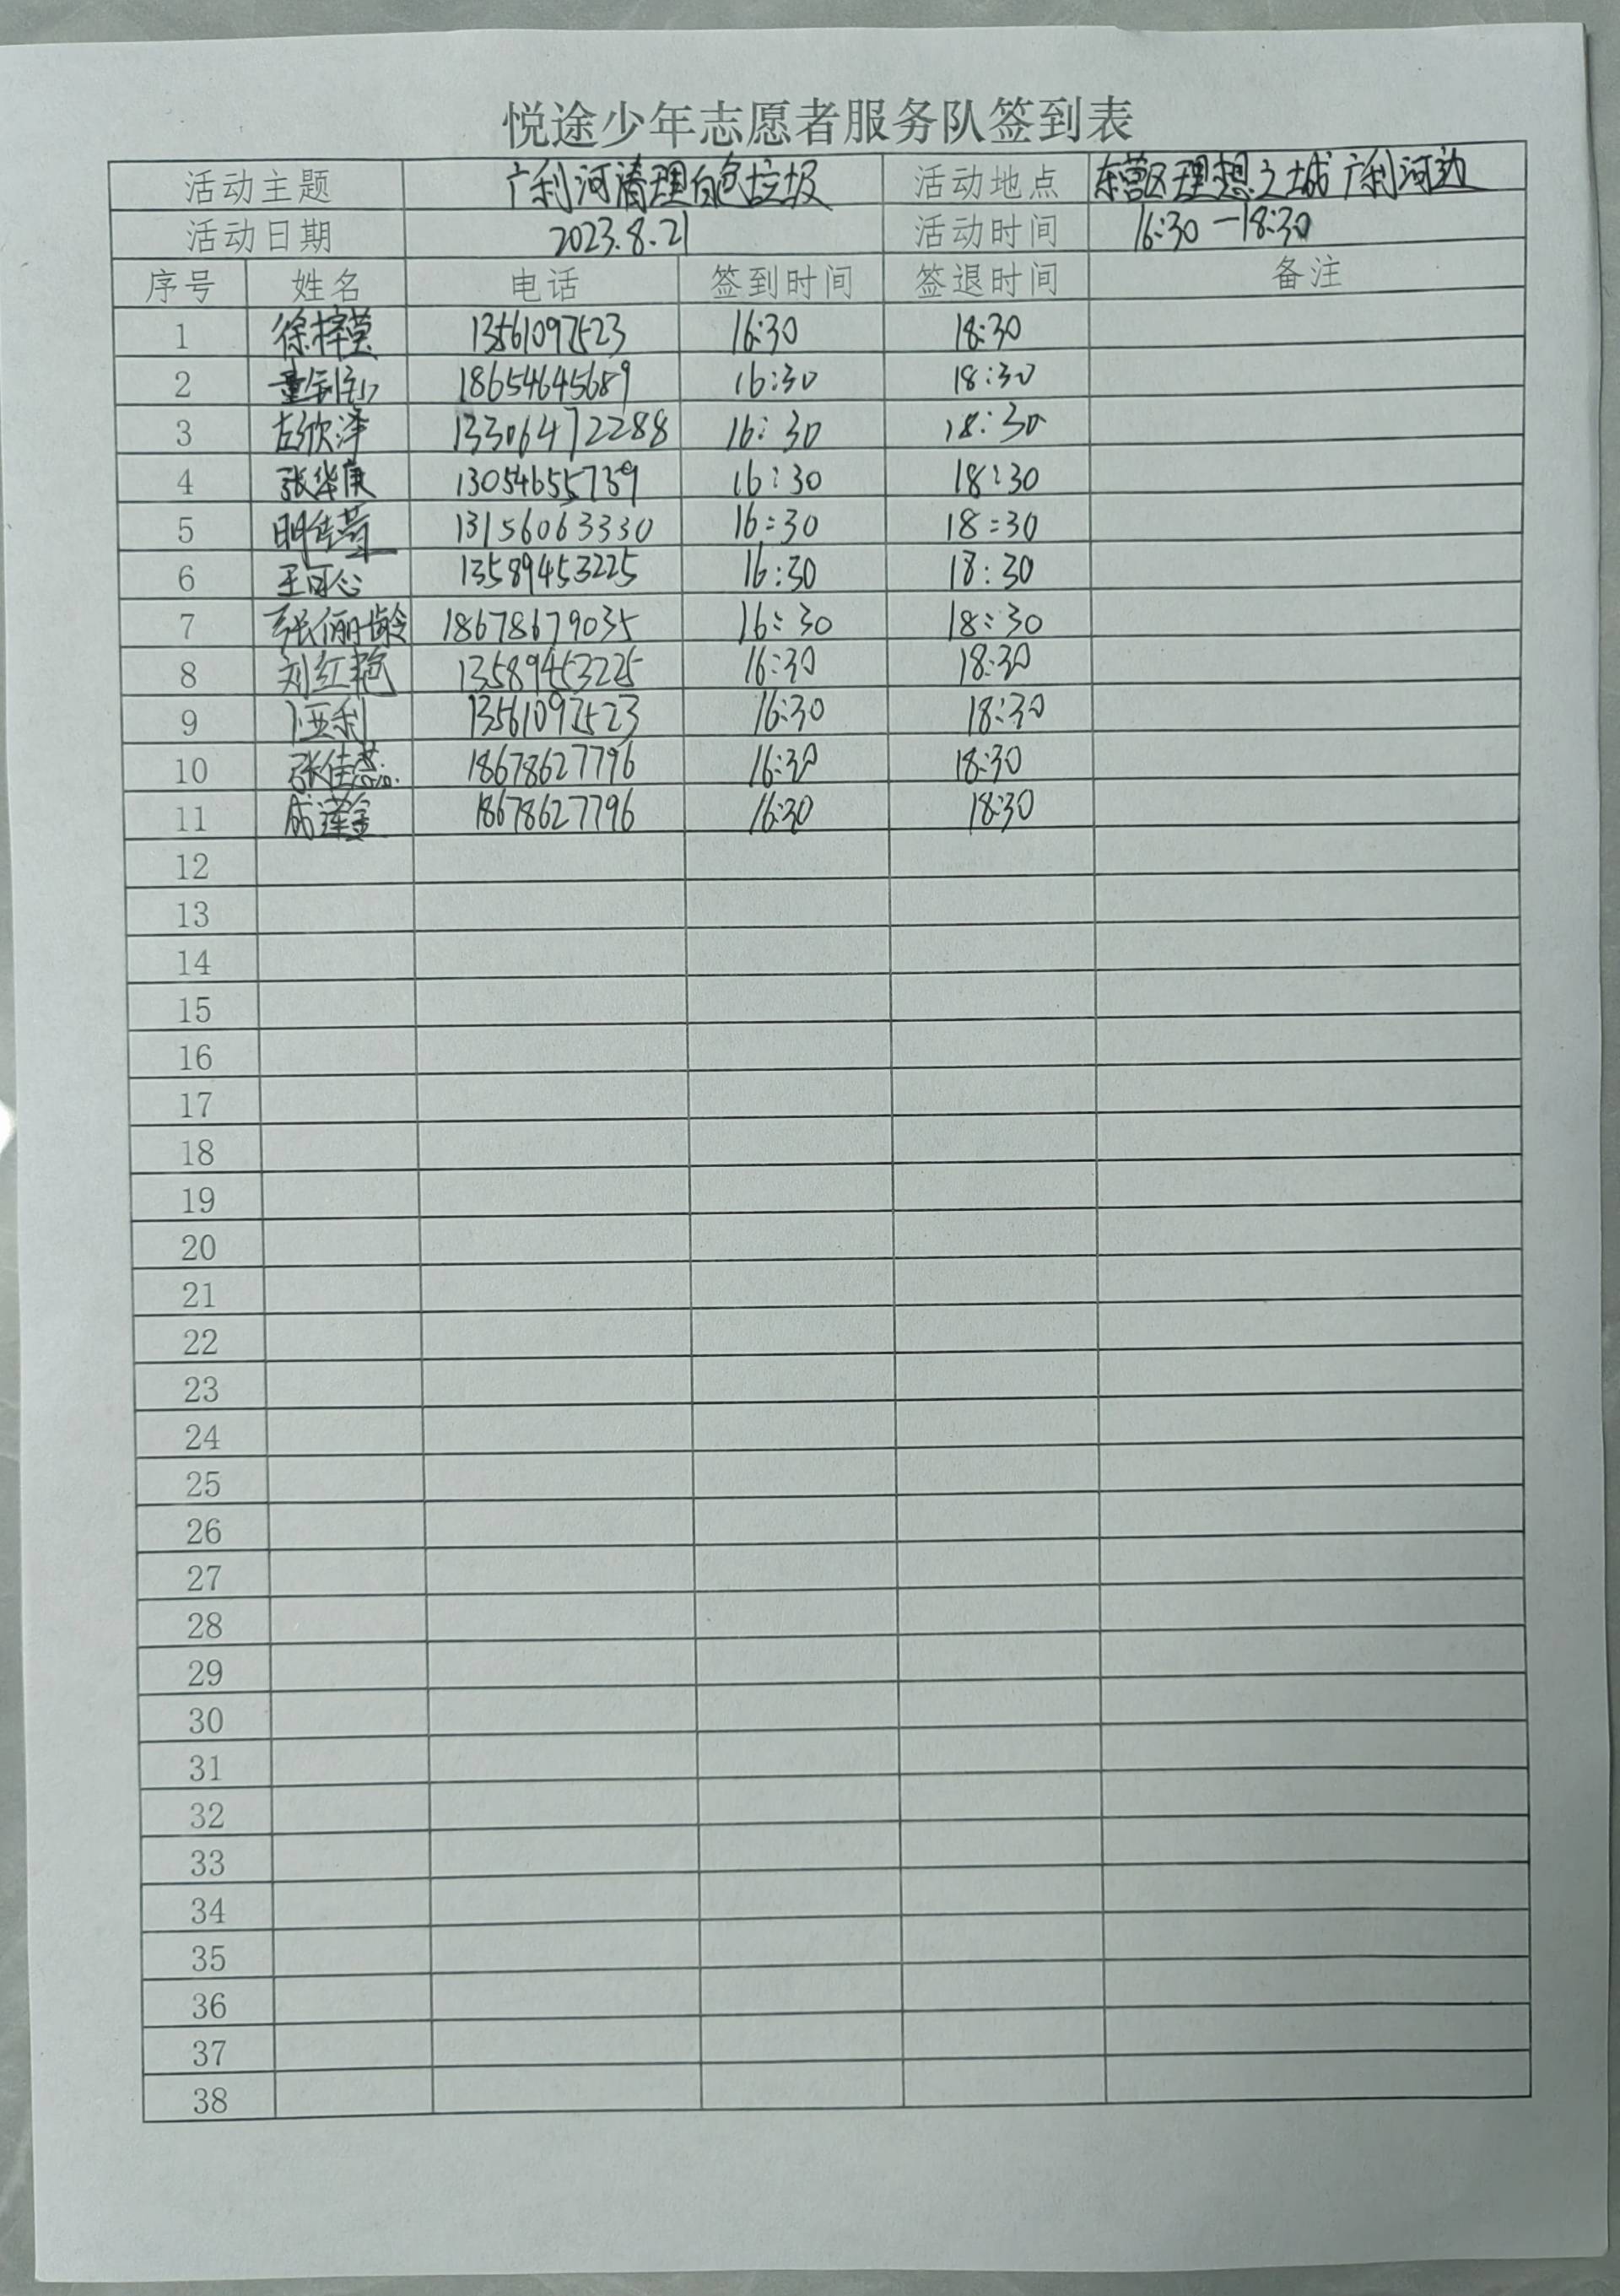 悦途少年志愿者服务队签到表
活动主题 广利河清理白色垃圾 活动地点 东营区理想之城广利河边
活动日期 2023.8.21 活动时间 16:30-18:30
序号 姓名 电话 签到时间 签退时间 备注
1 徐梓莹 13561097523 16:30 18:30
2 18654645689 16:30 18:30
3 左欣泽 13306472288 16:30 18:30
4 张华庚 13054655739 16:30 18:30
5 13156063330 16:30 18:30
6 王可心 13589453225 16:30 18:30
7 张俪龄 18678679035 16:30 18:30
8 刘红艳 13589453225 16:30 18:30
9 卜亚利 13561097523 16:30 18:30
10 张佳蕊 18678627796 16:30 18:30
11 18678627796 16:30 18:30
12
13
14
15
16
17
18
19
20
21
22
23
24
25
26
27
28
29
30
31
32
33
34
35
36
37
38